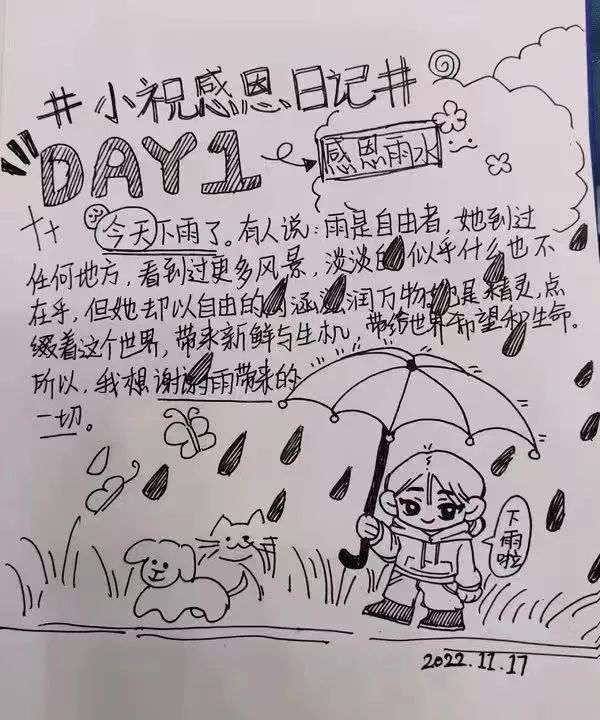 #小祝感恩日记#
DAY1
感恩雨水
今天下雨了。有人说:雨是自由者,她到过
任何地方,看到过更多风景,淡淡的 似乎什么也不
在乎,但她却以自由的 涵 润万物。她是精灵,点
缀着这个世界,带来新鲜与生机,带给世界希望和生命。
所以,我想谢谢雨带来的
一切。
下雨啦
2022.11.17